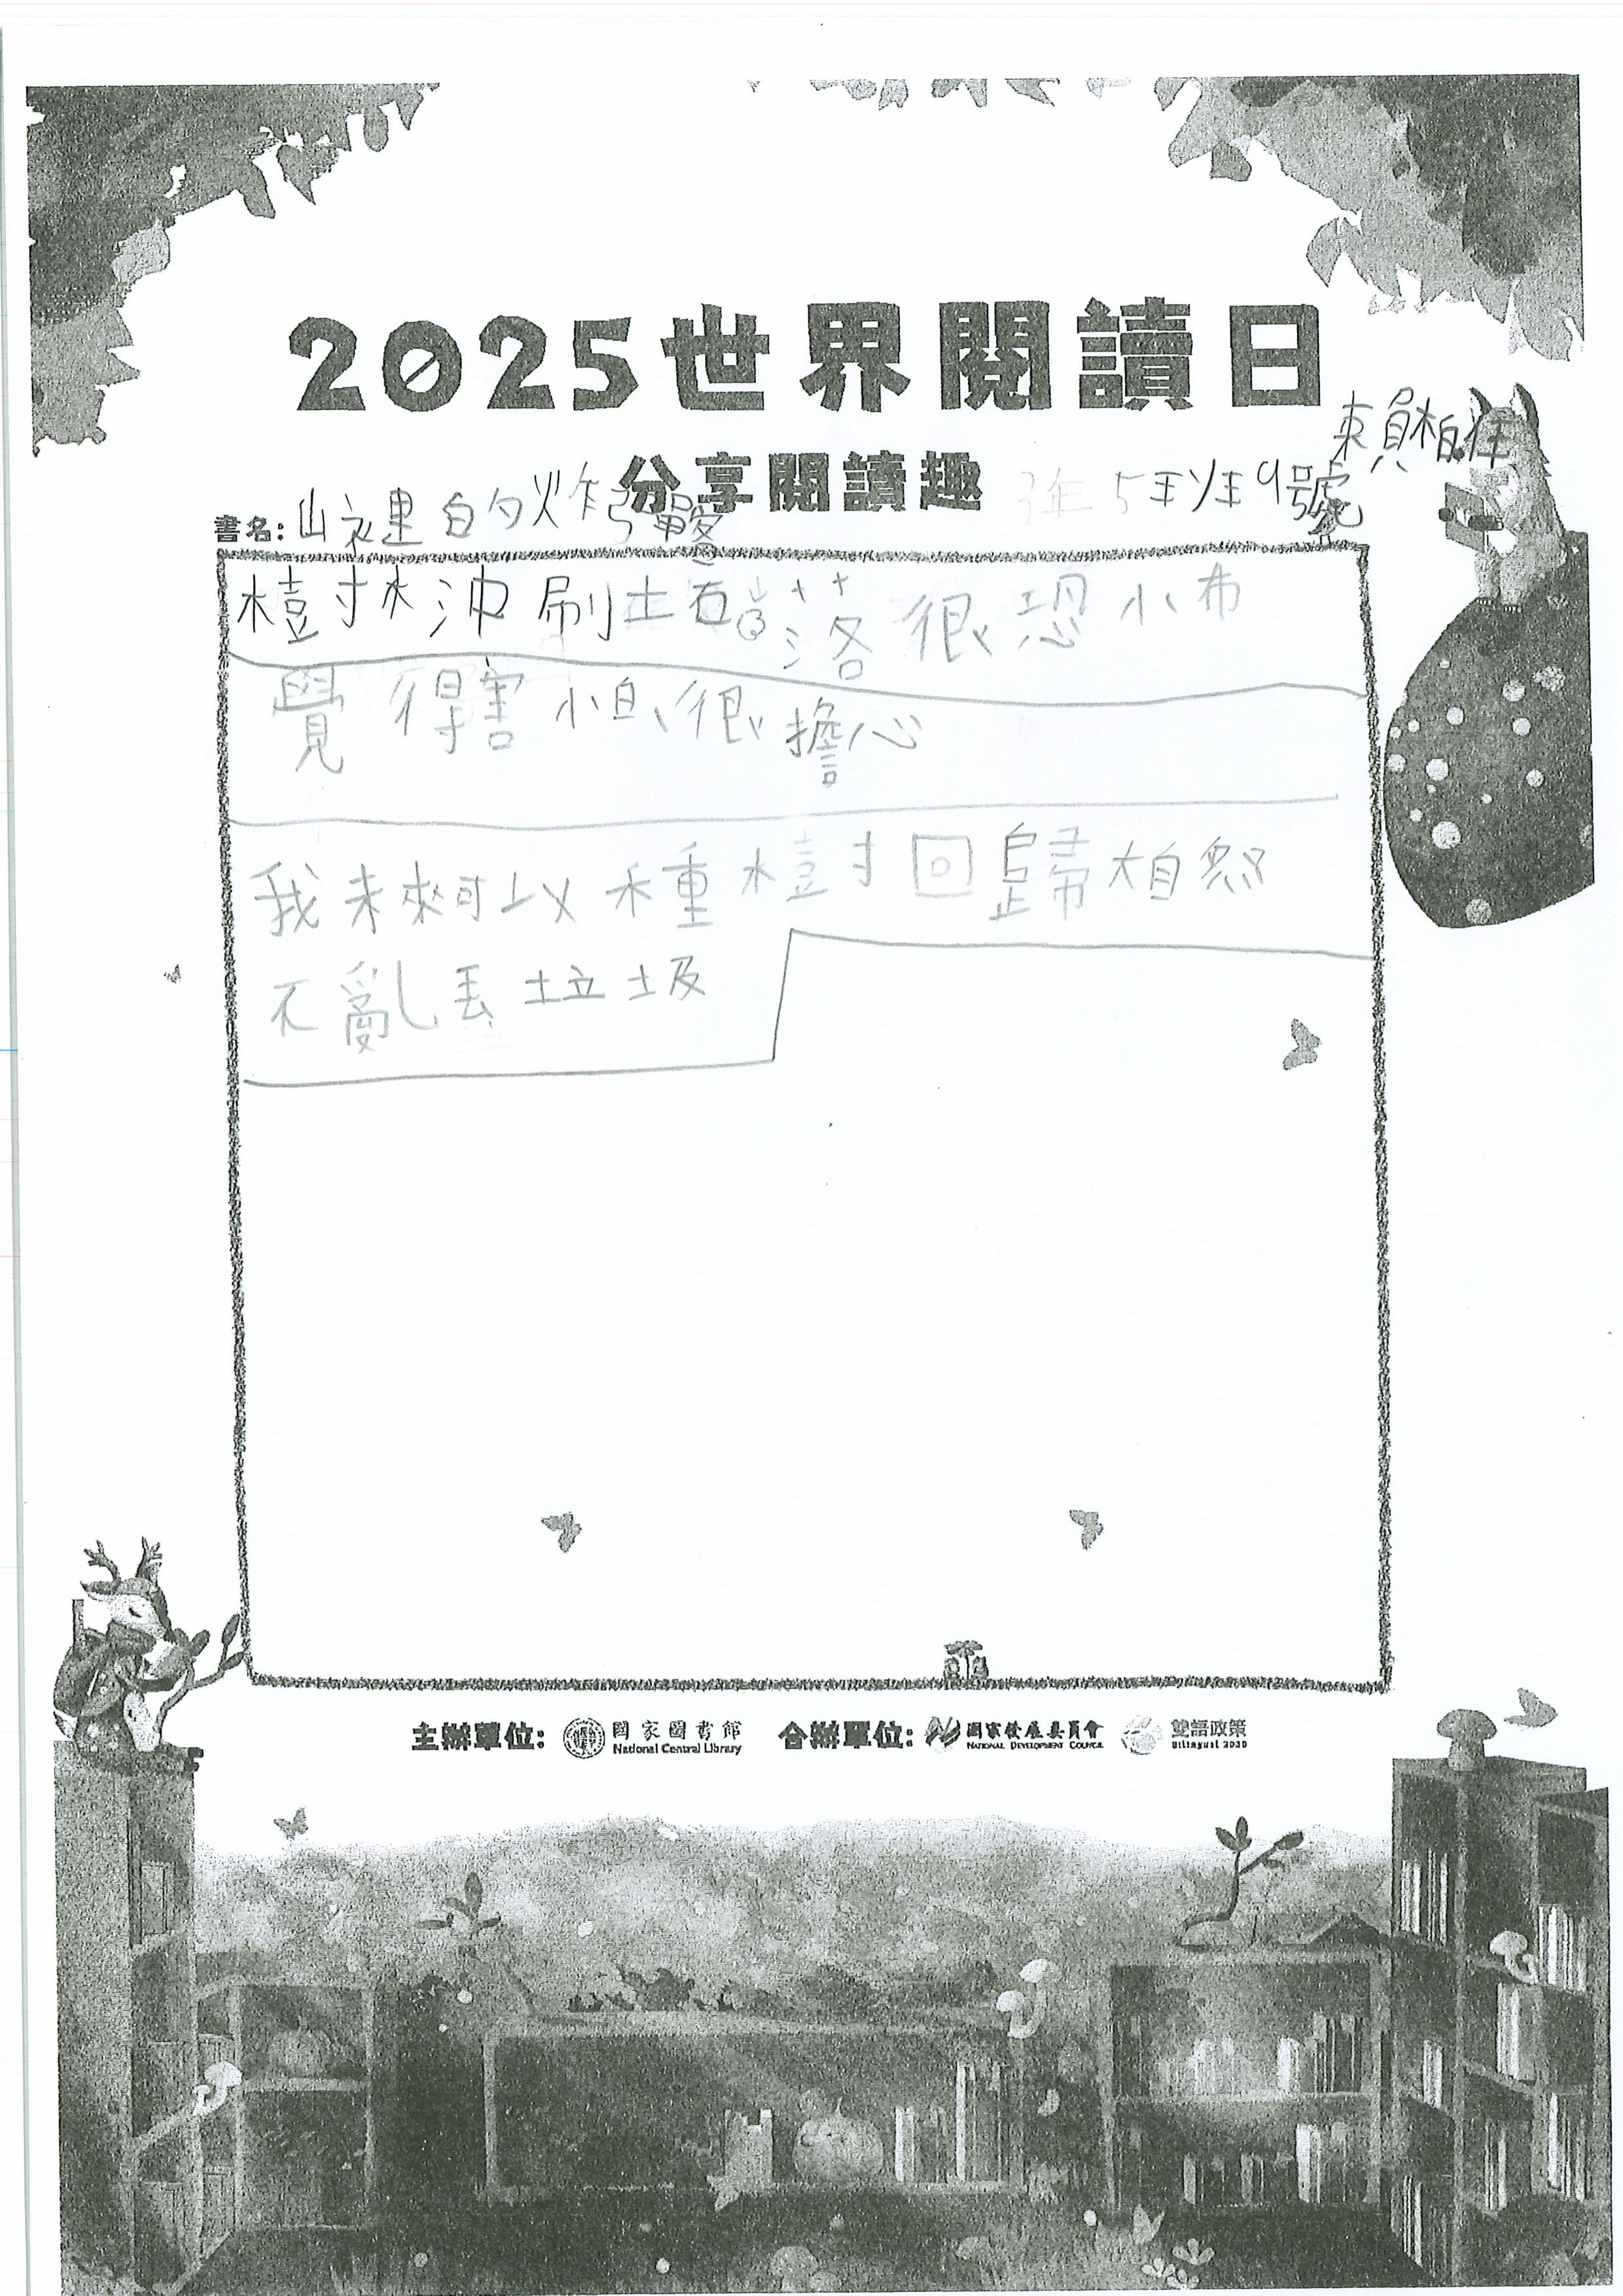 2025世界閱讀日
賴柏
分享閱讀趣
3年5班9號
書名: 山裡的炸彈
樹林沖刷土石落很恐怖
覺得害怕很擔心
我未來可以種樹回歸大自然
不亂丟垃圾
主辦單位: 國家圖書館 National Central Library 合辦單位: 國家發展委員會 NATIONAL DEVELOPMENT COUNCIL 雙語政策 Bilingual 2030